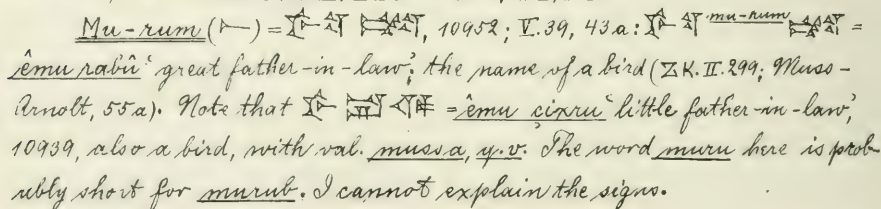 Mu-rum (𒁹) = , 10952; V. 39, 43a: mu-rum =
êmu rabû ‘great father-in-law’; the name of a bird (ZK. II. 299; Muss-
Arnolt, 55a). Note that = êmu çixru ‘little father-in-law’,
10939, also a bird, with val. mussa, q.v. The word muru here is prob-
ably short for murub. I cannot explain the signs.